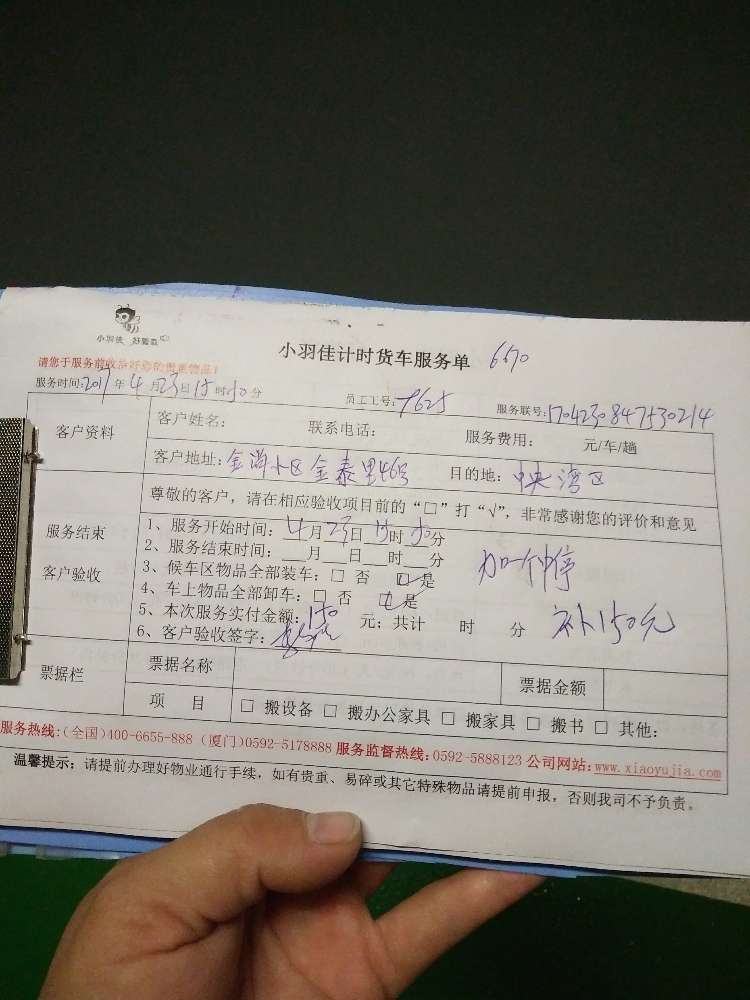 小羽佳 好管家
小羽佳计时货车服务单 6670
请您于服务前收拾好您的贵重物品!
服务时间:2017年4月23日15时30分 员工工号: 9625 服务联号:1704230847530214
客户资料
客户姓名: 联系电话: 服务费用: 元/车/趟
客户地址: 金尚小区金泰里46号 目的地: 中央湾区
服务结束
客户验收
尊敬的客户,请在相应验收项目前的“□”打“√”,非常感谢您的评价和意见
1、服务开始时间: 4月23日15时30分
2、服务结束时间: 月 日 时 分
3、候车区物品全部装车: □ 否 □ 是
4、车上物品全部卸车: □ 否 □ 是
5、本次服务实付金额: 150 元; 共计 时 分
6、客户验收签字:
加一个停
补150元
票据栏
票据名称 票据金额
项 目 □ 搬设备 □ 搬办公家具 □ 搬家具 □ 搬书 □ 其他:
服务热线:(全国)400-6655-888 (厦门)0592-5178888 服务监督热线: 0592-5888123 公司网站: www.xiaoyujia.com
温馨提示: 请提前办理好物业通行手续,如有贵重、易碎或其它特殊物品请提前申报,否则我司不予负责。